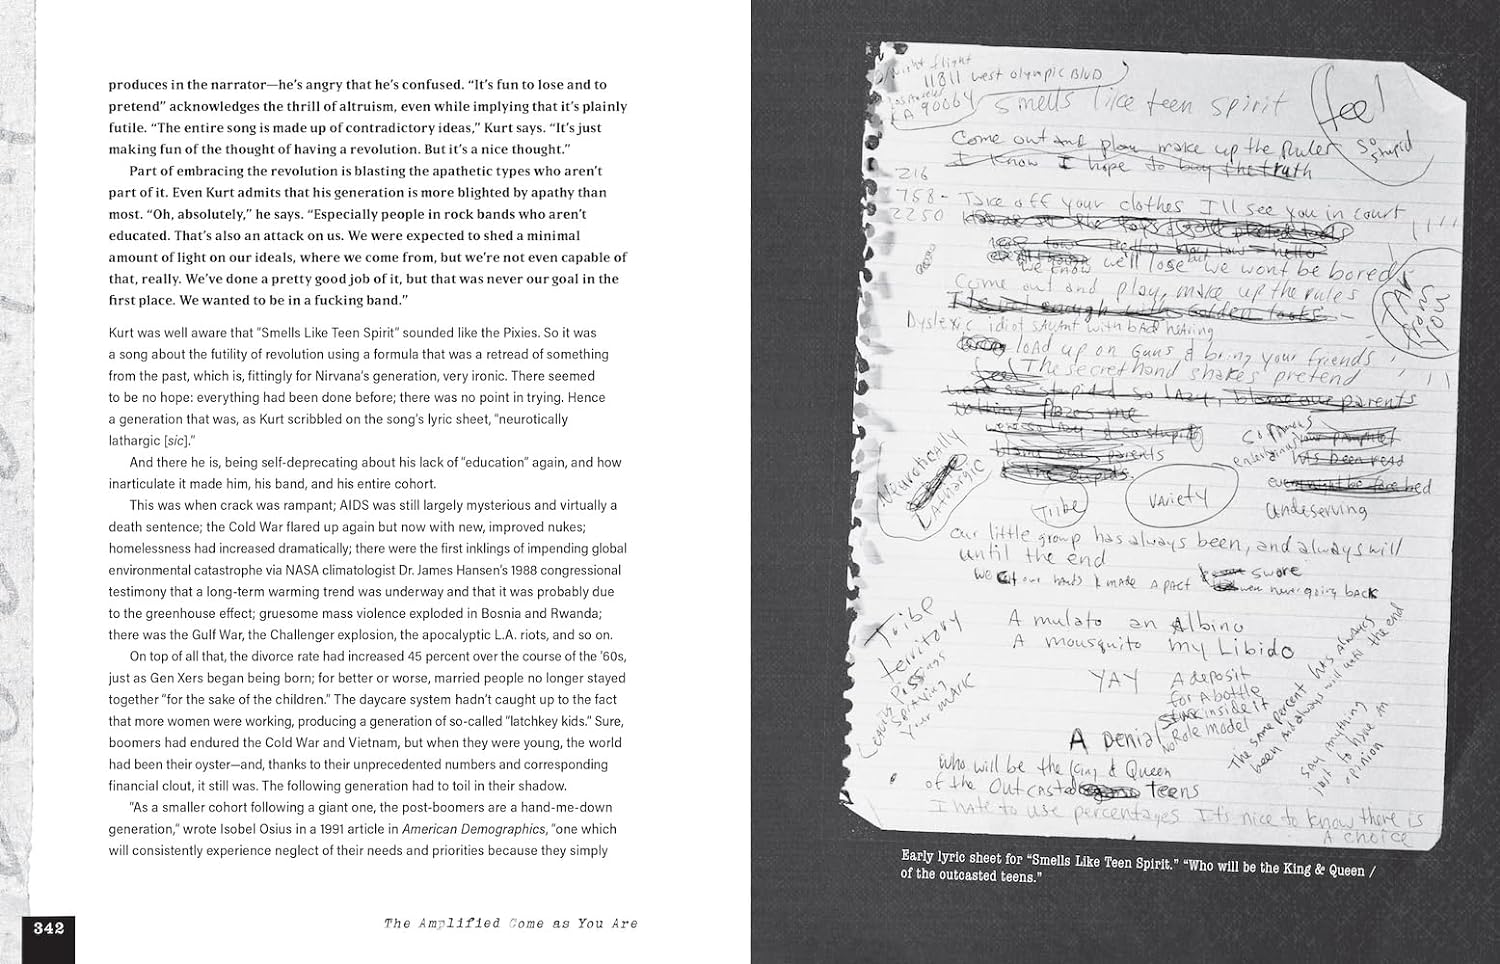 produces in the narrator—he's angry that he's confused. "It's fun to lose and to
pretend" acknowledges the thrill of altruism, even while implying that it's plainly
futile. "The entire song is made up of contradictory ideas," Kurt says. "It's just
making fun of the thought of having a revolution. But it's a nice thought."
Part of embracing the revolution is blasting the apathetic types who aren't
part of it. Even Kurt admits that his generation is more blighted by apathy than
most. "Oh, absolutely," he says. "Especially people in rock bands who aren't
educated. That's also an attack on us. We were expected to shed a minimal
amount of light on our ideals, where we come from, but we're not even capable of
that, really. We've done a pretty good job of it, but that was never our goal in the
first place. We wanted to be in a fucking band."
Kurt was well aware that "Smells Like Teen Spirit" sounded like the Pixies. So it was
a song about the futility of revolution using a formula that was a retread of something
from the past, which is, fittingly for Nirvana's generation, very ironic. There seemed
to be no hope: everything had been done before; there was no point in trying. Hence
a generation that was, as Kurt scribbled on the song's lyric sheet, "neurotically
lathargic [sic]."
And there he is, being self-deprecating about his lack of "education" again, and how
inarticulate it made him, his band, and his entire cohort.
This was when crack was rampant; AIDS was still largely mysterious and virtually a
death sentence; the Cold War flared up again but now with new, improved nukes;
homelessness had increased dramatically; there were the first inklings of impending global
environmental catastrophe via NASA climatologist Dr. James Hansen's 1988 congressional
testimony that a long-term warming trend was underway and that it was probably due
to the greenhouse effect; gruesome mass violence exploded in Bosnia and Rwanda;
there was the Gulf War, the Challenger explosion, the apocalyptic L.A. riots, and so on.
On top of all that, the divorce rate had increased 45 percent over the course of the '60s,
just as Gen Xers began being born; for better or worse, married people no longer stayed
together "for the sake of the children." The daycare system hadn't caught up to the fact
that more women were working, producing a generation of so-called "latchkey kids." Sure,
boomers had endured the Cold War and Vietnam, but when they were young, the world
had been their oyster—and, thanks to their unprecedented numbers and corresponding
financial clout, it still was. The following generation had to toil in their shadow.
"As a smaller cohort following a giant one, the post-boomers are a hand-me-down
generation," wrote Isobel Osius in a 1991 article in American Demographics, "one which
will consistently experience neglect of their needs and priorities because they simply
342
The Amplified Come as You Are
Night flight
11811 west olympic BLVD
Los Angeles
CA 90064
Smells like teen spirit
feel
so stupid
Come out and play make up the Rules
I know I hope to buy the truth
216
758-
2250
Take off your clothes I'll see you in court
we know we'll lose but we wont be bored
Come out and play, make up the rules
Dyslexic idiot savant with bad hearing
load up on Guns & bring your friends
The secret hand shakes pretend
were so stupid so lazy, blame our parents
nothing fazes me
were so lazy & so stupid
blame our parents
Neurotically
Lathargic
Tribe
Variety
has been read
undeserving
our little group has always been, and always will
until the end
we cut our hands & made a pact
swore
were never going back
Tribe
territory
Leaving
Pissings
Spraying
your mark
A mulato an Albino
A mousquito my Libido
YAY
A deposit
for A bottle
stuck inside it
No Role model
A Denial
The same percent has always
been and always will until the end
say anything
just to have an
opinion
who will be the King & Queen
of the Outcasted Teens
I hate to use percentages It's nice to know there is
A choice
Early lyric sheet for "Smells Like Teen Spirit." "Who will be the King & Queen /
of the outcasted teens."